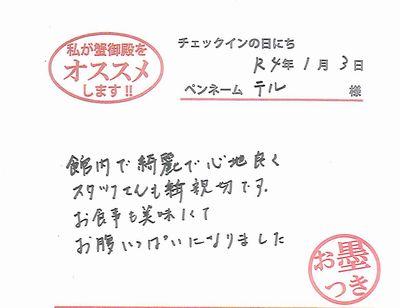 私が蟹御殿を
オススメ
します!!
チェックインの日にち
R4年1月3日
ペンネーム テル 様
館内で綺麗で心地良く
スタッフさんも親切です。
お食事も美味くて
お腹いっぱいになりました
お墨
つき